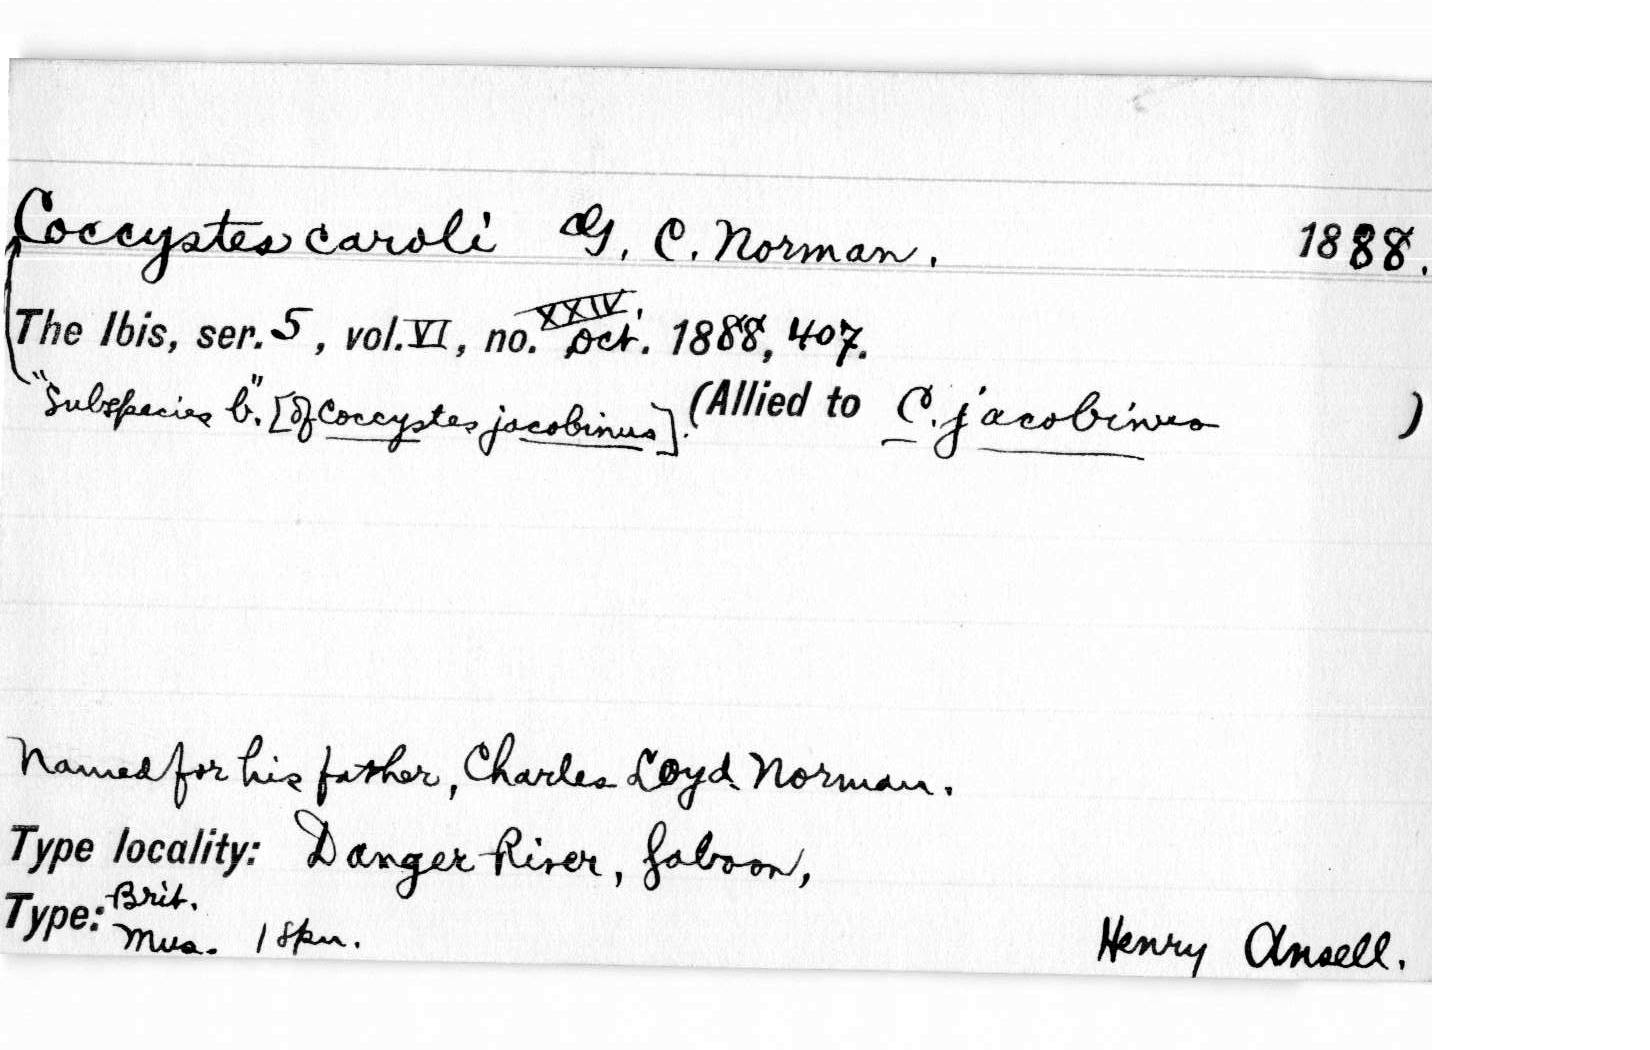 Coccystes caroli G. C. Norman. 1888.
The Ibis, ser. 5, vol. VI, no. XXIV, Oct. 1888, 407.
"Subspecies b". [of Coccystes jacobinus]. (Allied to C. jacobinus )
Named for his father, Charles Loyd Norman.
Type locality: Danger River, Gaboon,
Type: Brit. Mus. 1 spn. Henry Ansell.